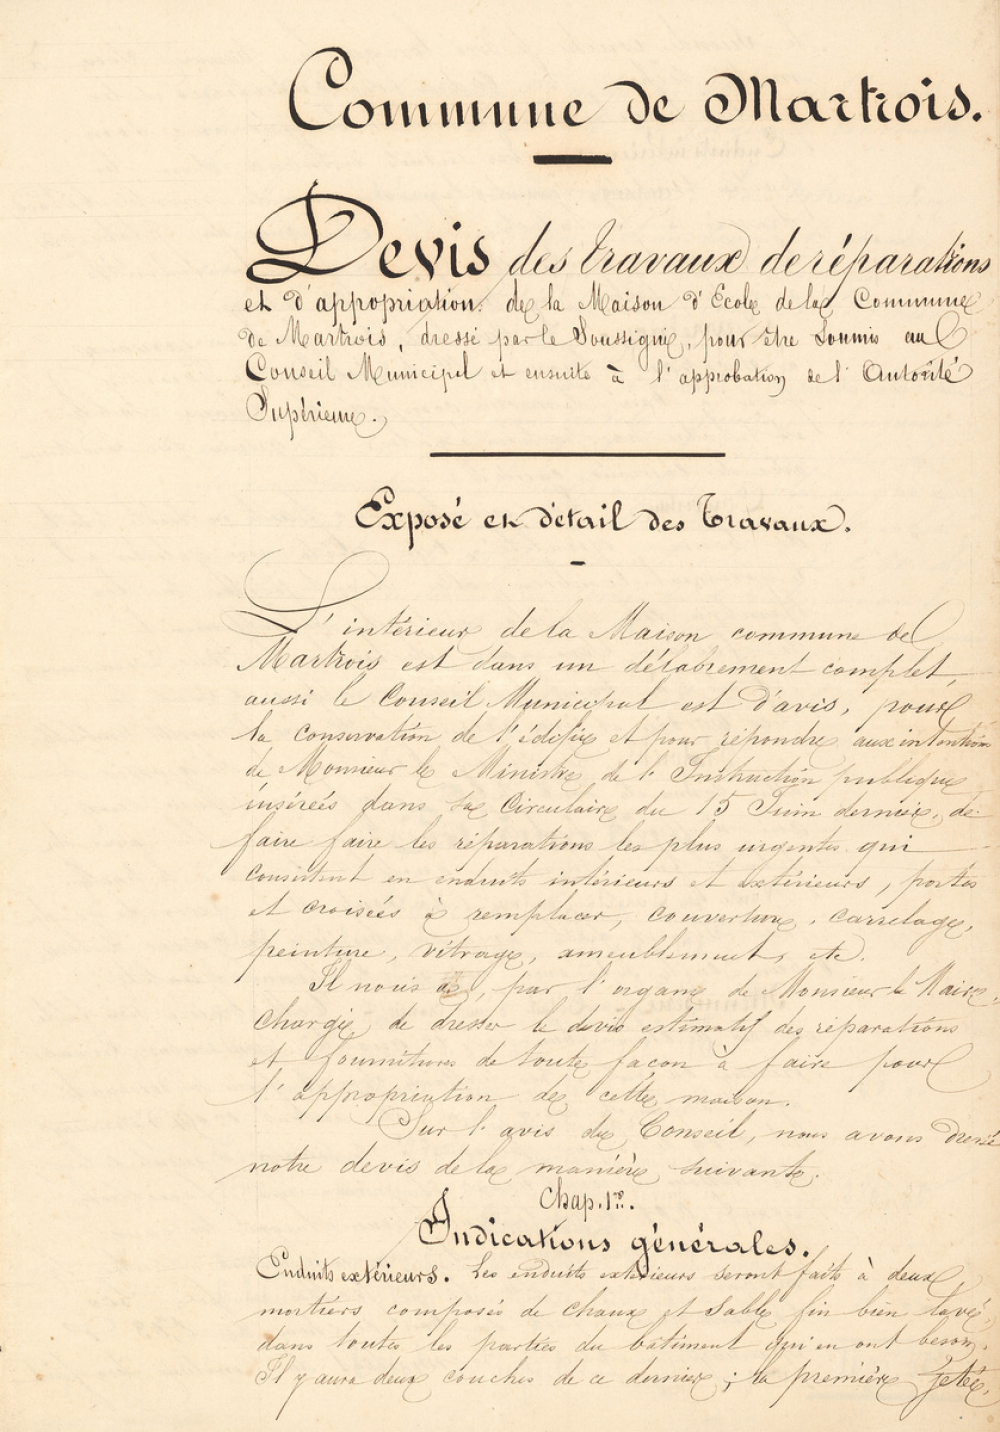 Commune de Martrois.
Devis des travaux de réparations
et d'appropriation de la Maison d'Ecole de la Commune
de Martrois, dressé par le Soussigné, pour être soumis au
Conseil Municipal et ensuite à l'approbation de l'Autorité
Supérieure.
Exposé et détail des Travaux.
L'intérieur de la Maison commune de
Martrois est dans un délabrement complet,
aussi le Conseil Municipal est d'avis, pour
la conservation de l'édifice et pour répondre aux intentions
de Monsieur le Ministre de l'Instruction publique
insérées dans sa Circulaire du 15 Juin dernier, de
faire faire les réparations les plus urgentes qui
consistent en enduits intérieurs et extérieurs, portes
et croisées à remplacer, couverture, carrelage,
peinture, vitrage, ameublement, etc.
Il nous a, par l'organe de Monsieur le Maire,
chargé de dresser le devis estimatif des réparations
et fournitures de toute façon à faire pour
l'appropriation de cette maison.
Sur l'avis du Conseil, nous avons dressé
notre devis de la manière suivante.
Chap. 1er.
Indications générales.
Enduits extérieurs. Les enduits extérieurs seront faits à deux
mortiers composés de chaux et sable fin bien lavé,
dans toutes les parties du bâtiment qui en ont besoin.
Il y aura deux couches de ce dernier ; la première jetée,